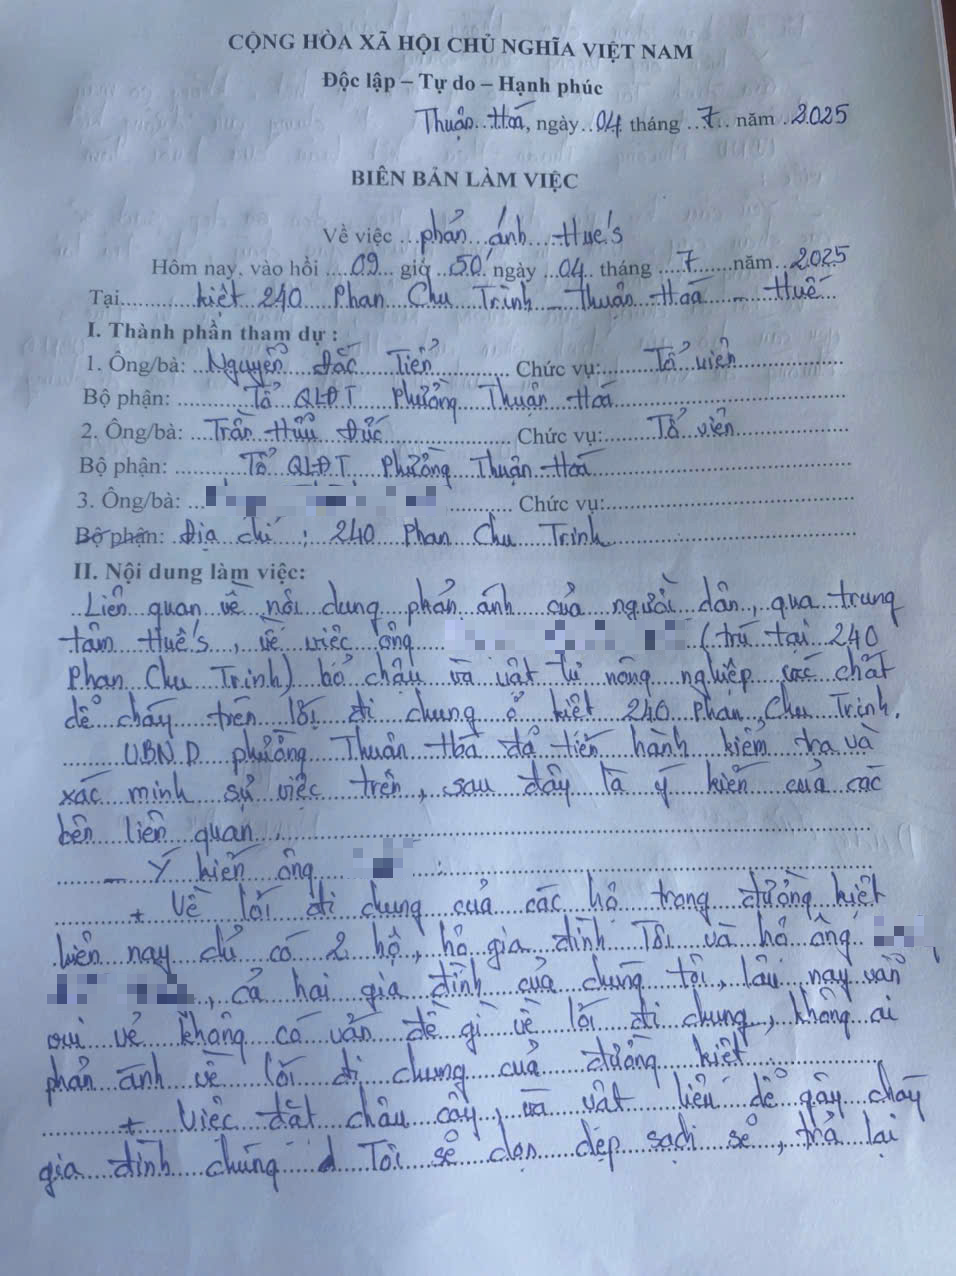 CỘNG HÒA XÃ HỘI CHỦ NGHĨA VIỆT NAM
Độc lập – Tự do – Hạnh phúc
Thuận Hoá, ngày 04 tháng 7 năm 2025
BIÊN BẢN LÀM VIỆC
Về việc phản ánh Hue's
Hôm nay, vào hồi 09 giờ 50' ngày 04 tháng 7 năm 2025
Tại kiệt 240 Phan Chu Trinh – Thuận Hoá – Huế
I. Thành phần tham dự :
1. Ông/bà: Nguyễn Đắc Tiến Chức vụ: Tổ viên
Bộ phận: Tổ QLĐT Phường Thuận Hoá
2. Ông/bà: Trần Hữu Đức Chức vụ: Tổ viên
Bộ phận: Tổ QLĐT Phường Thuận Hoá
3. Ông/bà: Chức vụ:
Bộ phận: Địa chỉ : 240 Phan Chu Trinh
II. Nội dung làm việc:
Liên quan về nội dung phản ánh của người dân, qua trung
tâm Huê's, về việc ông (trú tại 240
Phan Chu Trinh) bỏ chậu và vật tư nông nghiệp các chất
dễ cháy trên lối đi chung ở kiệt 240 Phan Chu Trinh.
UBND phường Thuận Hoá đã tiến hành kiểm tra và
xác minh sự việc trên, sau đây là ý kiến của các
bên liên quan.
– Ý kiến ông :
+ Về lối đi chung của các hộ trong đường kiệt
hiện nay chỉ có 2 hộ, hộ gia đình Tôi và hộ ông
, cả hai gia đình của chúng tôi, lâu nay vẫn
vui vẻ không có vấn đề gì về lối đi chung, không ai
phản ánh về lối đi chung của đường kiệt.
+ Việc đặt chậu cây, và vật liệu dễ gây cháy
gia đình chúng Tôi sẽ dọn dẹp sạch sẽ, trả lại